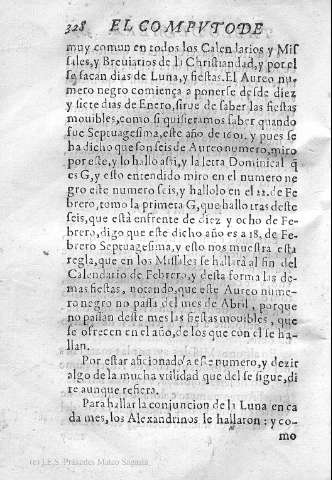 328 EL COMPVTO DE
muy comun en todos los Calendarios y Mis
sales, y Breuiarios de la Christiandad, y por el
se sacan dias de Luna, y fiestas. El Aureo nu
mero negro comiença a ponerse desde diez
y siete dias de Enero, sirue de saber las fiestas
mouibles, como si quisieramos saber quando
fue Septuagesima, este año de 1601. y pues se
ha dicho que son seis de Aureo numero, miro
por este, y lo hallo assi, y la letra Dominical q̃
es G, y esto entendido miro en el numero ne
gro este numero seis, y hallolo en el 12. de Fe
brero, tomo la primera G, que hallo tras deste
seis, que està enfrente de diez y ocho de Fe-
brero, digo que este dicho año es a 18. de Fe-
brero Septuagesima, y esto nos muestra esta
regla, que en los Missales se hallarà al fin del
Calendario de Febrero, y desta forma las de-
mas fiestas, notando, que este Aureo nume-
ro negro no passa del mes de Abril, porque
no passan deste mes las fiestas mouibles, que
se ofrecen en el año, de los que con el se ha-
llan.
Por estar aficionado a este numero, y dezir
algo de la mucha vtilidad que del se sigue, di
re aunque refiera.
Para hallar la conjuncion de la Luna en ca
da mes, los Alexandrinos le hallaron: y co-
mo
(c) I.E.S. Práxedes Mateo Sagasta